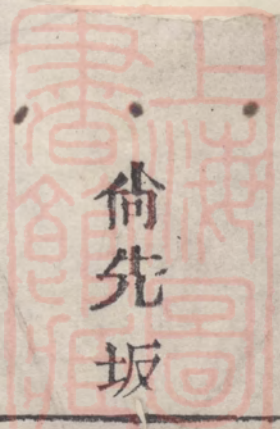 上海圖
書館藏
倘先坂